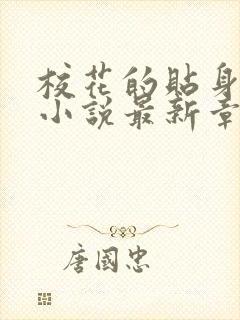 校花的貼身
小說最新章
唐國忠